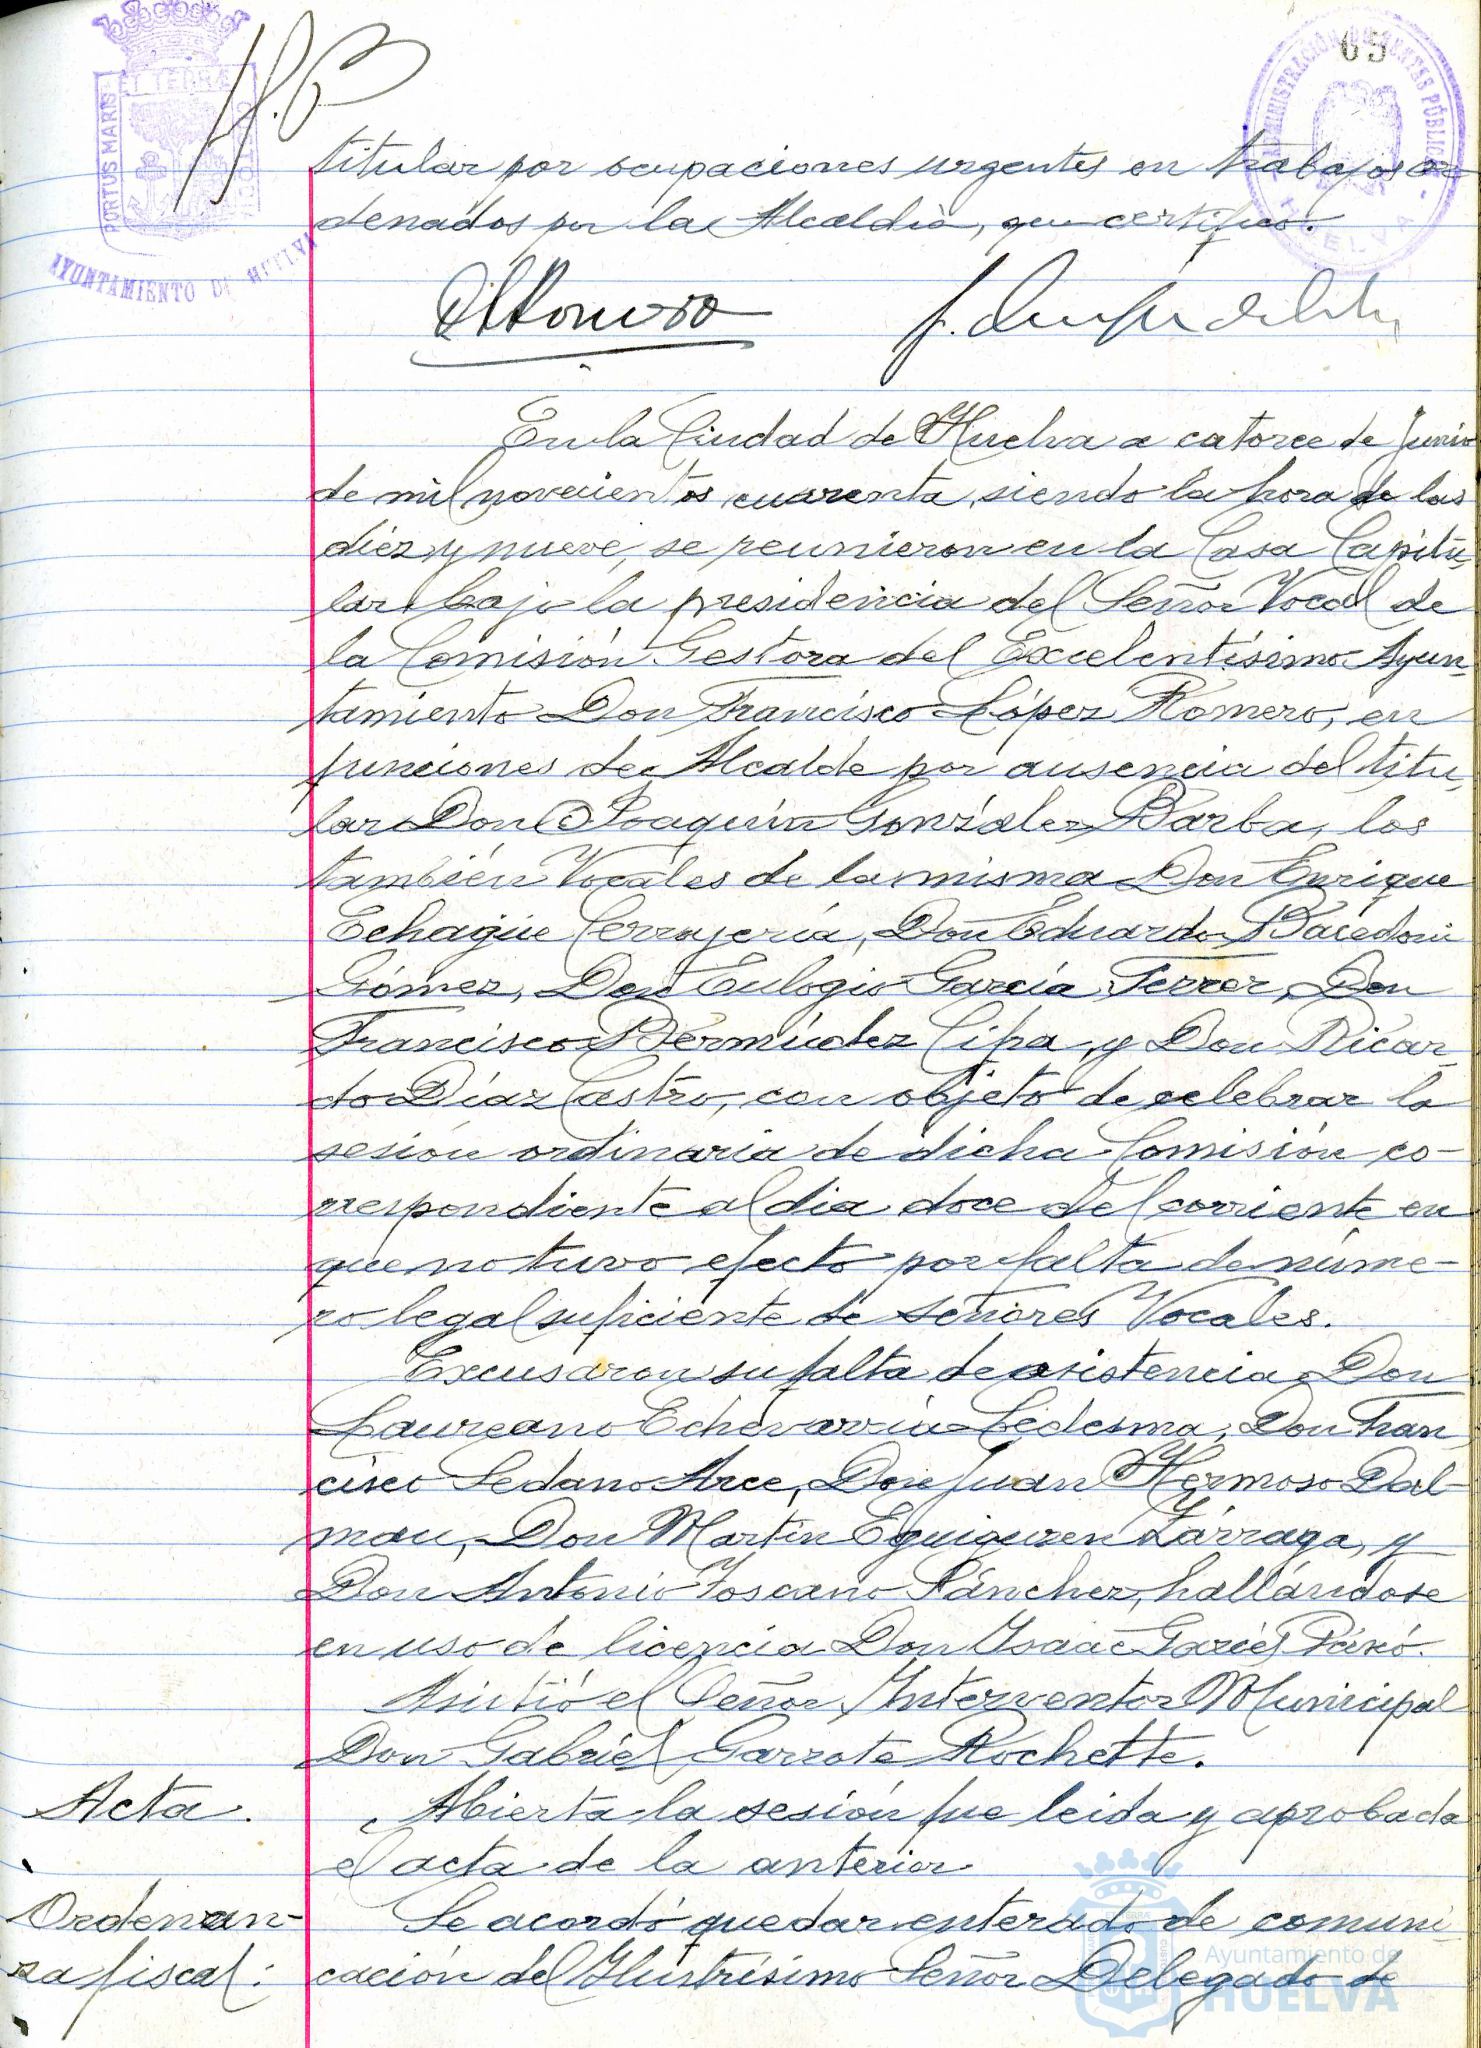 65
ET TERRÆ
PORTUS MARIS
CUSTODIA
AYUNTAMIENTO DE HUELVA
ADMINISTRACIÓN DE RENTAS PÚBLICAS
HUELVA
titular por ocupaciones urgentes en trabajos or-
denados por la Alcaldía, que certifico.
En la Ciudad de Huelva a catorce de Junio
de mil novecientos cuarenta, siendo la hora de las
diez y nueve, se reunieron en la Casa Capitu-
lar bajo la presidencia del Señor Vocal de
la Comisión Gestora del Excelentísimo Ayun-
tamiento Don Francisco López Romero, en
funciones de Alcalde por ausencia del titu-
lar Don Joaquín González Barba, los
también Vocales de la misma Don Enrique
Echagüe Cerrajería, Don Eduardo Bacedoni
Gómez, Don Eulogio García Ferrer, Don
Francisco Bermúdez Cipa, y Don Ricar-
do Díaz Castro, con objeto de celebrar la
sesión ordinaria de dicha Comisión co-
rrespondiente al dia doce del corriente en
que no tuvo efecto por falta de núme-
ro legal suficiente de señores Vocales.
Excusaron su falta de asistencia Don
Laureano Echevarria Ledesma, Don Fran
cisco Sedano Arce, Don Juan Hermoso Dal-
mau, Don Martín Eguiguren Zárraga, y
Don Antonio Toscano Sánchez, hallándose
en uso de licencia Don Ysaac
Asistió el Señor Interventor Municipal
Don Gabriel Garrote Rochette.
Acta.
Abierta la sesión fue leida y aprobada
el acta de la anterior.
Ordenan-
za fiscal:
Se acordó quedar enterado de comuni-
cación del Ilustrísimo Señor Delegado de
Ayuntamiento de
HUELVA